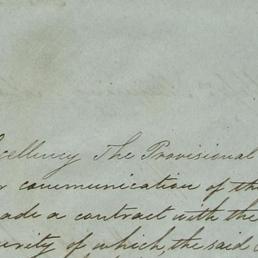 cellency The Provisional
communication of the
ade a contract with the
urity of which, the said